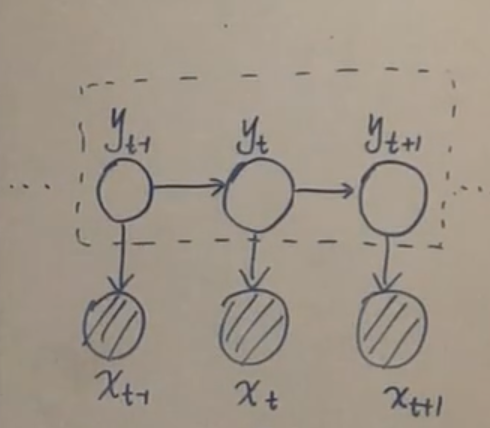 y_{t-1} y_t y_{t+1}
... ...
x_{t-1} x_t x_{t+1}